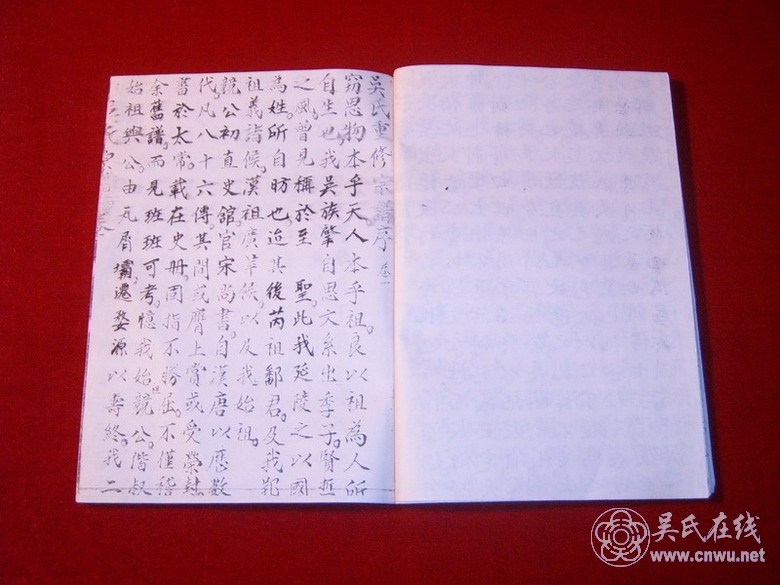 吳氏重修宗譜序 卷一
窃思物本乎天。人本乎祖。良以祖為人所
自生也。我吳族肇自思文系出季子。賢哲
之風。曾見稱於至聖。此我延陵之以國
為姓。所自昉也。迨其後芮祖鄱君。及我
祖義諸侯。漢祖廣芊侯。以及我始祖。
競公初直史館。官宋尚書。自漢唐以歷數
代。凡八十六傳。其間或膺上賞或受榮封
書於太常。載在史册。固指不勝屈。不僅稽
余舊譜。而見班班可考。憶我始祖競公。偕叔
始祖興公。由瓦屑壩。遷婺源以壽終。我二
吴氏在线
www.cnwu.net